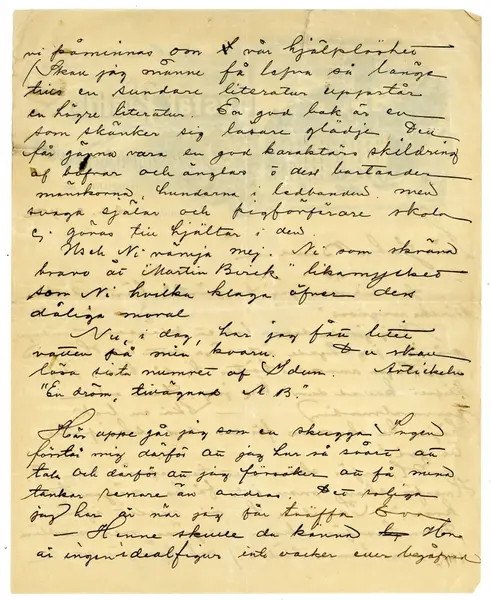 vi påminnas om vår hjälplöshet
Skall jag månne få lefva så länge
tills en sundare literatur uppstår
en högre literatur. En god bok är en
som skänker sig läsare glädje. Den
får gärna vara en god karaktärs skildring
af bofvar och änglas ö den
människorna, hundarna i ledbanden men
svaga själar och pigförförare skola
ej göras till hjältar i den.
Usch Ni vämja mej. Ni som skräna
bravo åt "Martin Birck" likamycket
som Ni hvilka klaga öfver den
dåliga moral
Nu, i dag, har jag fått litet
vatten på min kvarn. Du skall
läsa sista numret af Idun. Artickeln
"En dröm, tillägnad M B."
Här uppe går jag som en skugga. Ingen
förstår mig därför att jag har så svårt att
tala och därför att jag försöker att få mina
tankar renare än andras. Det roliga
jag har är när jag får träffa Eva
— Henne skulle du känna Hon
är ingen idealfigur inte vacker eller begåfvad